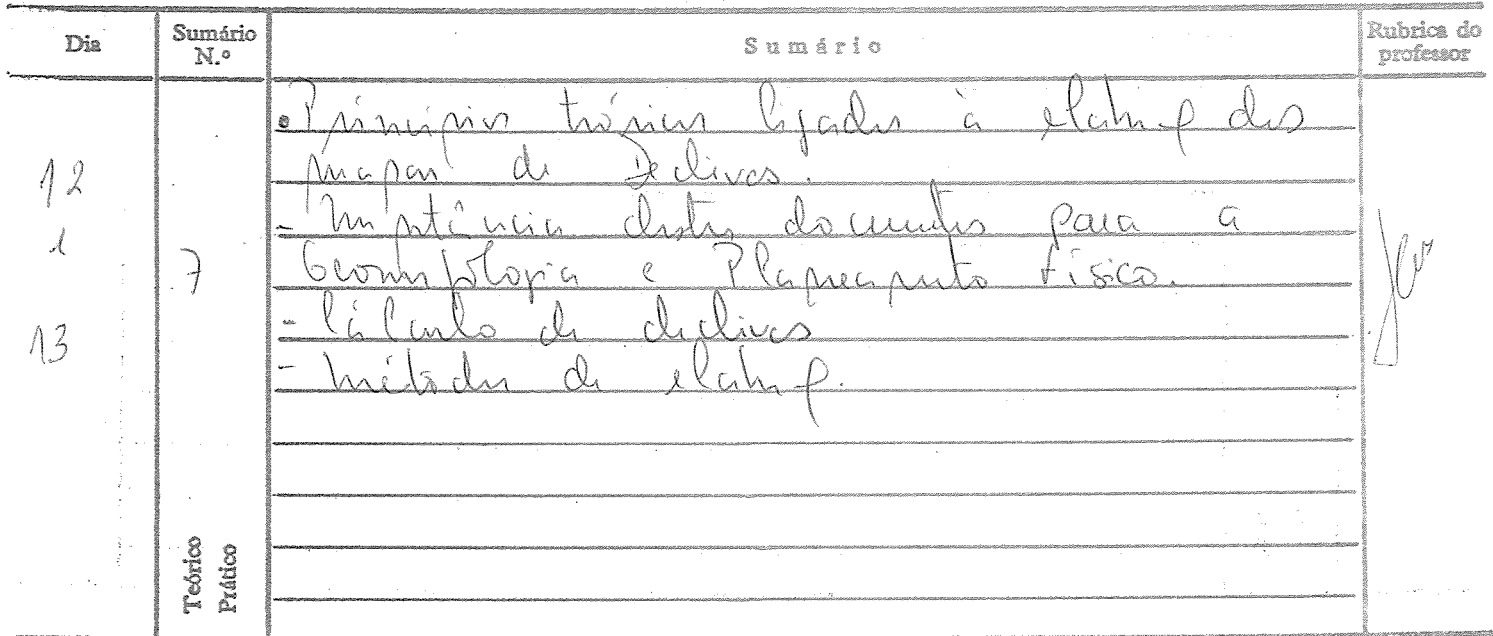 Dia
Sumário N.º
Sumário
Rubrica do professor
12
1
13
7
• Princípios teóricos ligados à elab. dos
mapas de Declives.
- Importância destes documentos para a
Geomorfologia e Planeamento Físico.
- Cálculo de declives
- Métodos de
Teórico
Prático